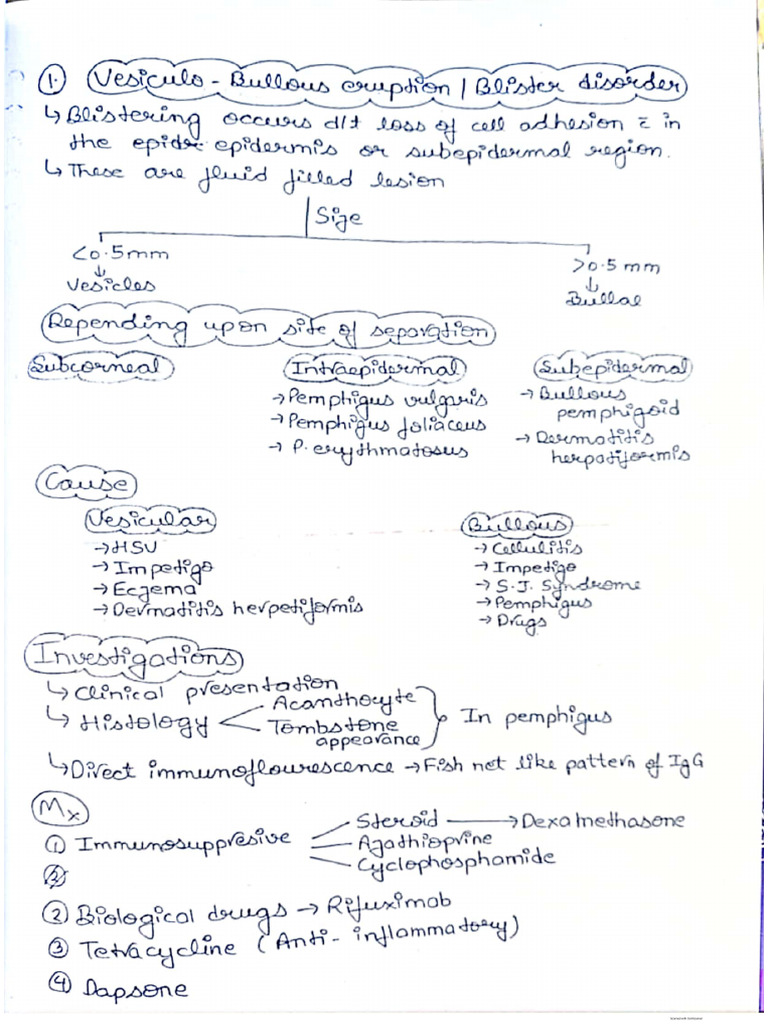 1. Vesiculo-Bullous eruption / Blister disorder
↳ Blistering occurs d/t loss of cell adhesion c̄ in
the epidr epidermis or subepidermal region.
↳ These are fluid filled lesion
Size
<0.5mm
>0.5 mm
↓
↓
Vesicles
Bullae
Depending upon site of separation
Subcorneal Intraepidermal Subepidermal
→ Pemphigus vulguris → Bullous
pemphigoid
→ Pemphigus foliaceus
→ P. erythmatosus → Dermatitis
herpatiformis
Cause
Vesicular Bullous
→ HSV → Cellulitis
→ Impetigo → Impetigo
→ Eczema → S.J. Syndrome
→ Dermatitis herpetiformis → Pemphigus
→ Drugs
Investigations
↳ Clinical presentation
↳ Histology Acanthocyte
Tombstone
appearance
In pemphigus
↳ Direct immunoflourescence → Fish net like pattern of IgG
Mx
① Immunosuppresive Steroid → Dexamethasone
Azathioprine
Cyclophosphamide
② Biological drugs → Rifuximab
③ Tetracycline (Anti-inflammatory)
④ Dapsone